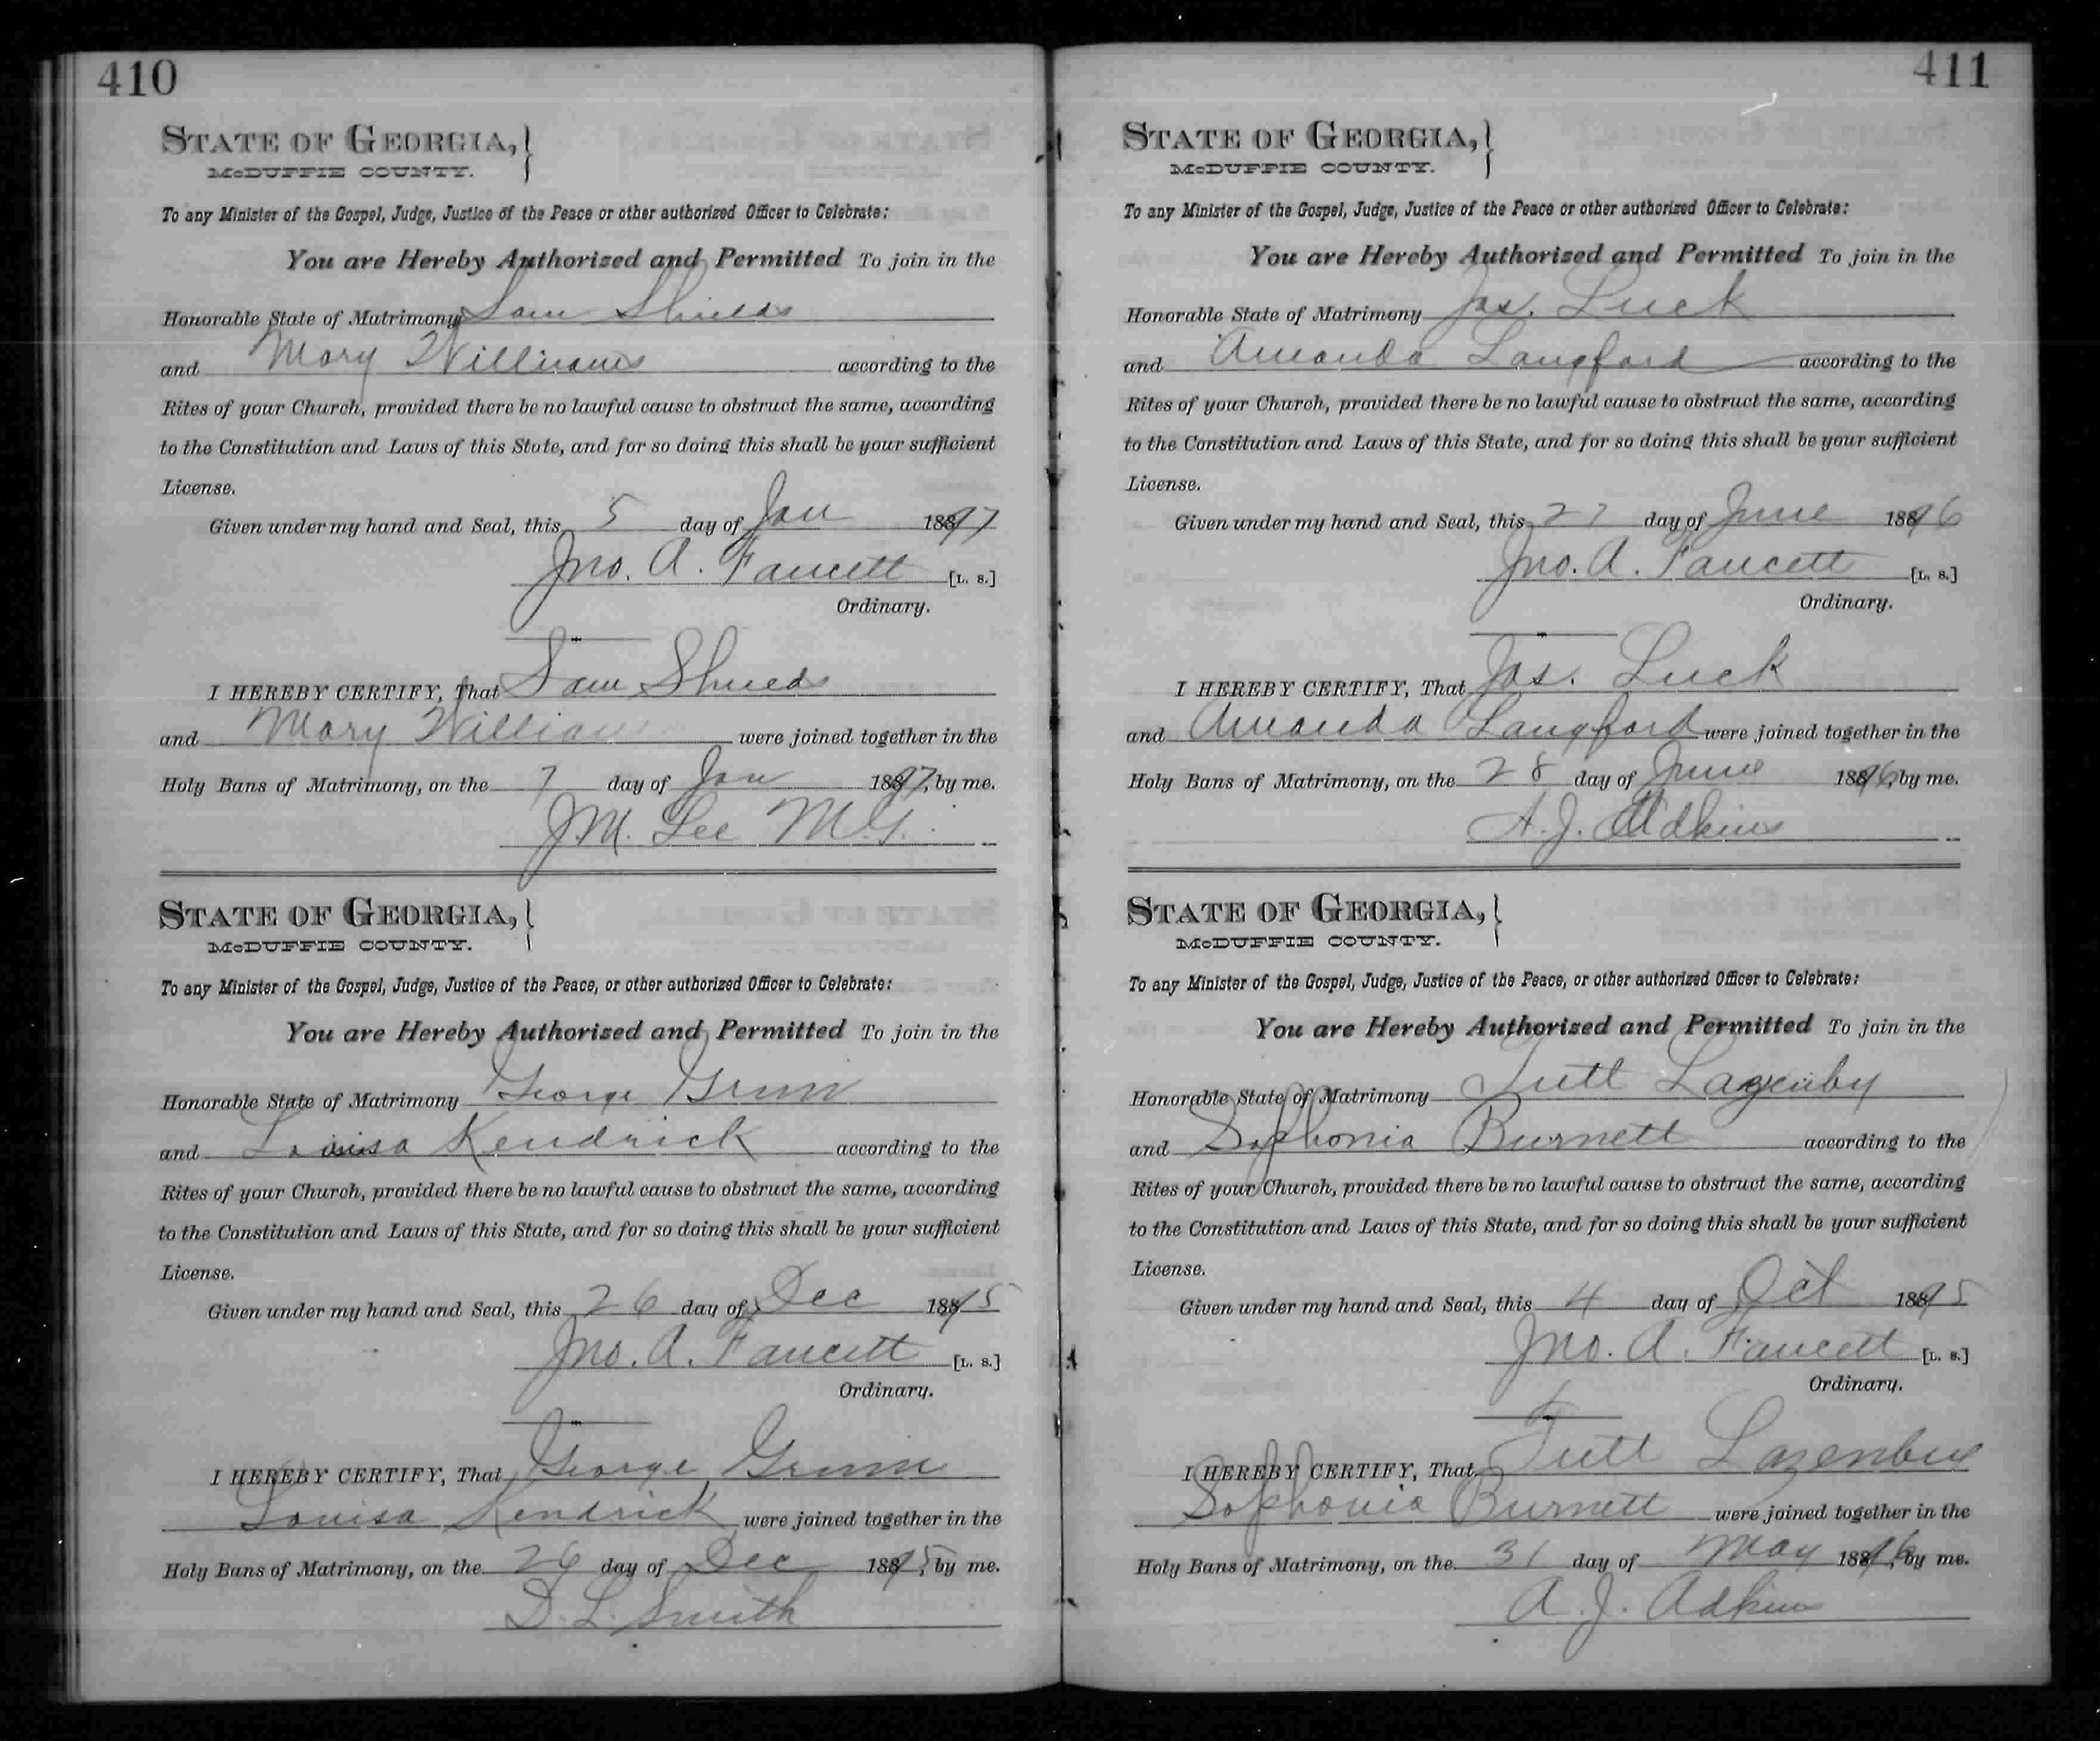 410
STATE OF GEORGIA,
McDUFFIE COUNTY.
To any Minister of the Gospel, Judge, Justice of the Peace or other authorized Officer to Celebrate:
You are Hereby Authorized and Permitted To join in the
Honorable State of Matrimony Sam Shields
and Mary Williams according to the
Rites of your Church, provided there be no lawful cause to obstruct the same, according
to the Constitution and Laws of this State, and for so doing this shall be your sufficient
License.
Given under my hand and Seal, this 5 day of Jan 1897
Jno. A. Faucett [L. S.]
Ordinary.
I HEREBY CERTIFY, That Sam Shields
and Mary William were joined together in the
Holy Bans of Matrimony, on the 7 day of Jan 1897, by me.
J.M. Lee M.G.
STATE OF GEORGIA,
McDUFFIE COUNTY.
To any Minister of the Gospel, Judge, Justice of the Peace, or other authorized Officer to Celebrate:
You are Hereby Authorized and Permitted To join in the
Honorable State of Matrimony George
and Louisa Kendrick according to the
Rites of your Church, provided there be no lawful cause to obstruct the same, according
to the Constitution and Laws of this State, and for so doing this shall be your sufficient
License.
Given under my hand and Seal, this 26 day of Dec 1895
Jno. A. Faucett [L. S.]
Ordinary.
I HEREBY CERTIFY, That George
Louisa Kendrick were joined together in the
Holy Bans of Matrimony, on the 26 day of Dec 1895, by me.
D. L. Smith
411
STATE OF GEORGIA,
McDUFFIE COUNTY.
To any Minister of the Gospel, Judge, Justice of the Peace or other authorized Officer to Celebrate:
You are Hereby Authorized and Permitted To join in the
Honorable State of Matrimony Jas. Luck
and Amanda Langford according to the
Rites of your Church, provided there be no lawful cause to obstruct the same, according
to the Constitution and Laws of this State, and for so doing this shall be your sufficient
License.
Given under my hand and Seal, this 27 day of June 1896
Jno. A. Faucett [L. S.]
Ordinary.
I HEREBY CERTIFY, That Jas. Luck
and Amanda Langford were joined together in the
Holy Bans of Matrimony, on the 28 day of June 1896, by me.
A. J. Adkins
STATE OF GEORGIA,
McDUFFIE COUNTY.
To any Minister of the Gospel, Judge, Justice of the Peace, or other authorized Officer to Celebrate:
You are Hereby Authorized and Permitted To join in the
Honorable State of Matrimony Tutt Lazenby
and Sophonia Burnett according to the
Rites of your Church, provided there be no lawful cause to obstruct the same, according
to the Constitution and Laws of this State, and for so doing this shall be your sufficient
License.
Given under my hand and Seal, this 4 day of Oct 1895
Jno. A. Faucett [L. S.]
Ordinary.
I HEREBY CERTIFY, That Tutt Lazenby
Sophonia Burnett were joined together in the
Holy Bans of Matrimony, on the 31 day of May 1896, by me.
A. J. Adkins